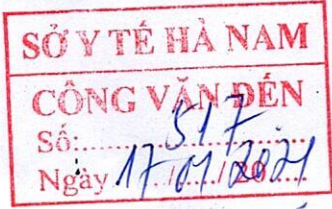 SỞ Y TẾ HÀ NAM
CÔNG VĂN ĐẾN
Số:.......517.......
Ngày 17/01/2021